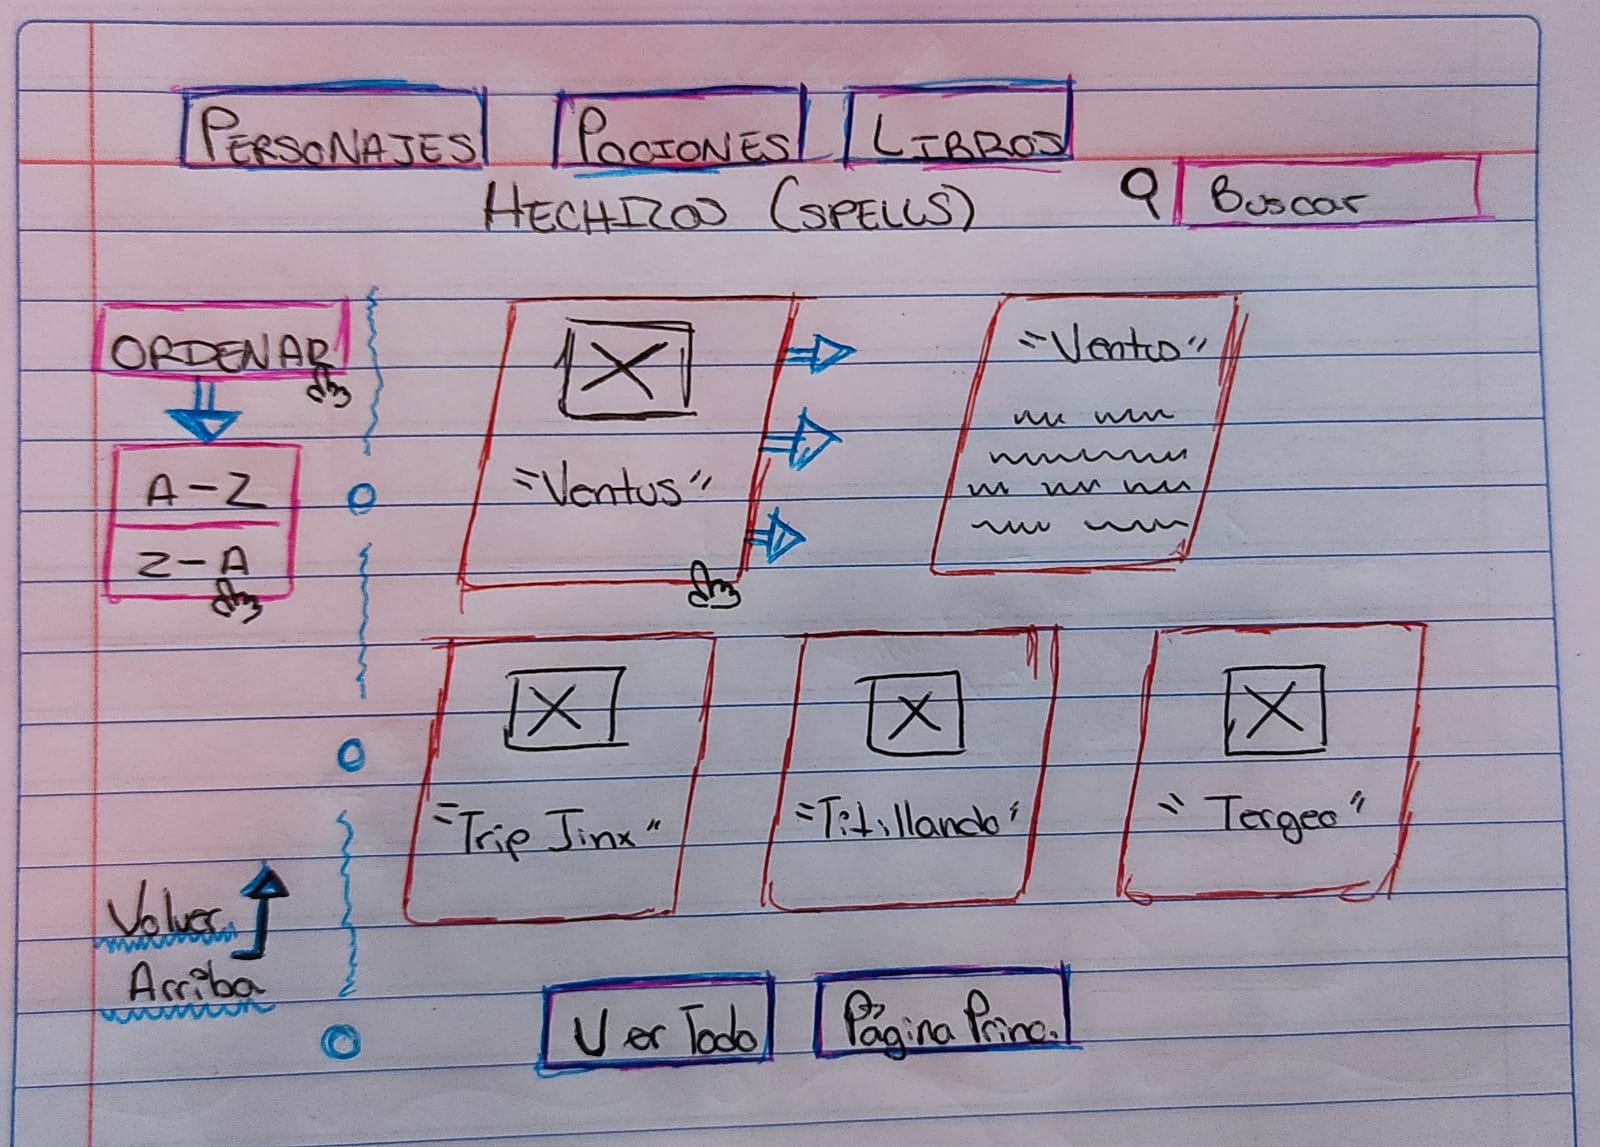 PERSONAJES
POCIONES
LIBROS
HECHIZOS (SPELLS)
Buscar
ORDENAR
A-Z
Z-A
"Ventus"
"Ventus"
"Trip Jinx"
"Titillando"
"Tergeo"
Volver
Arriba
Ver Todo
Página Princ.